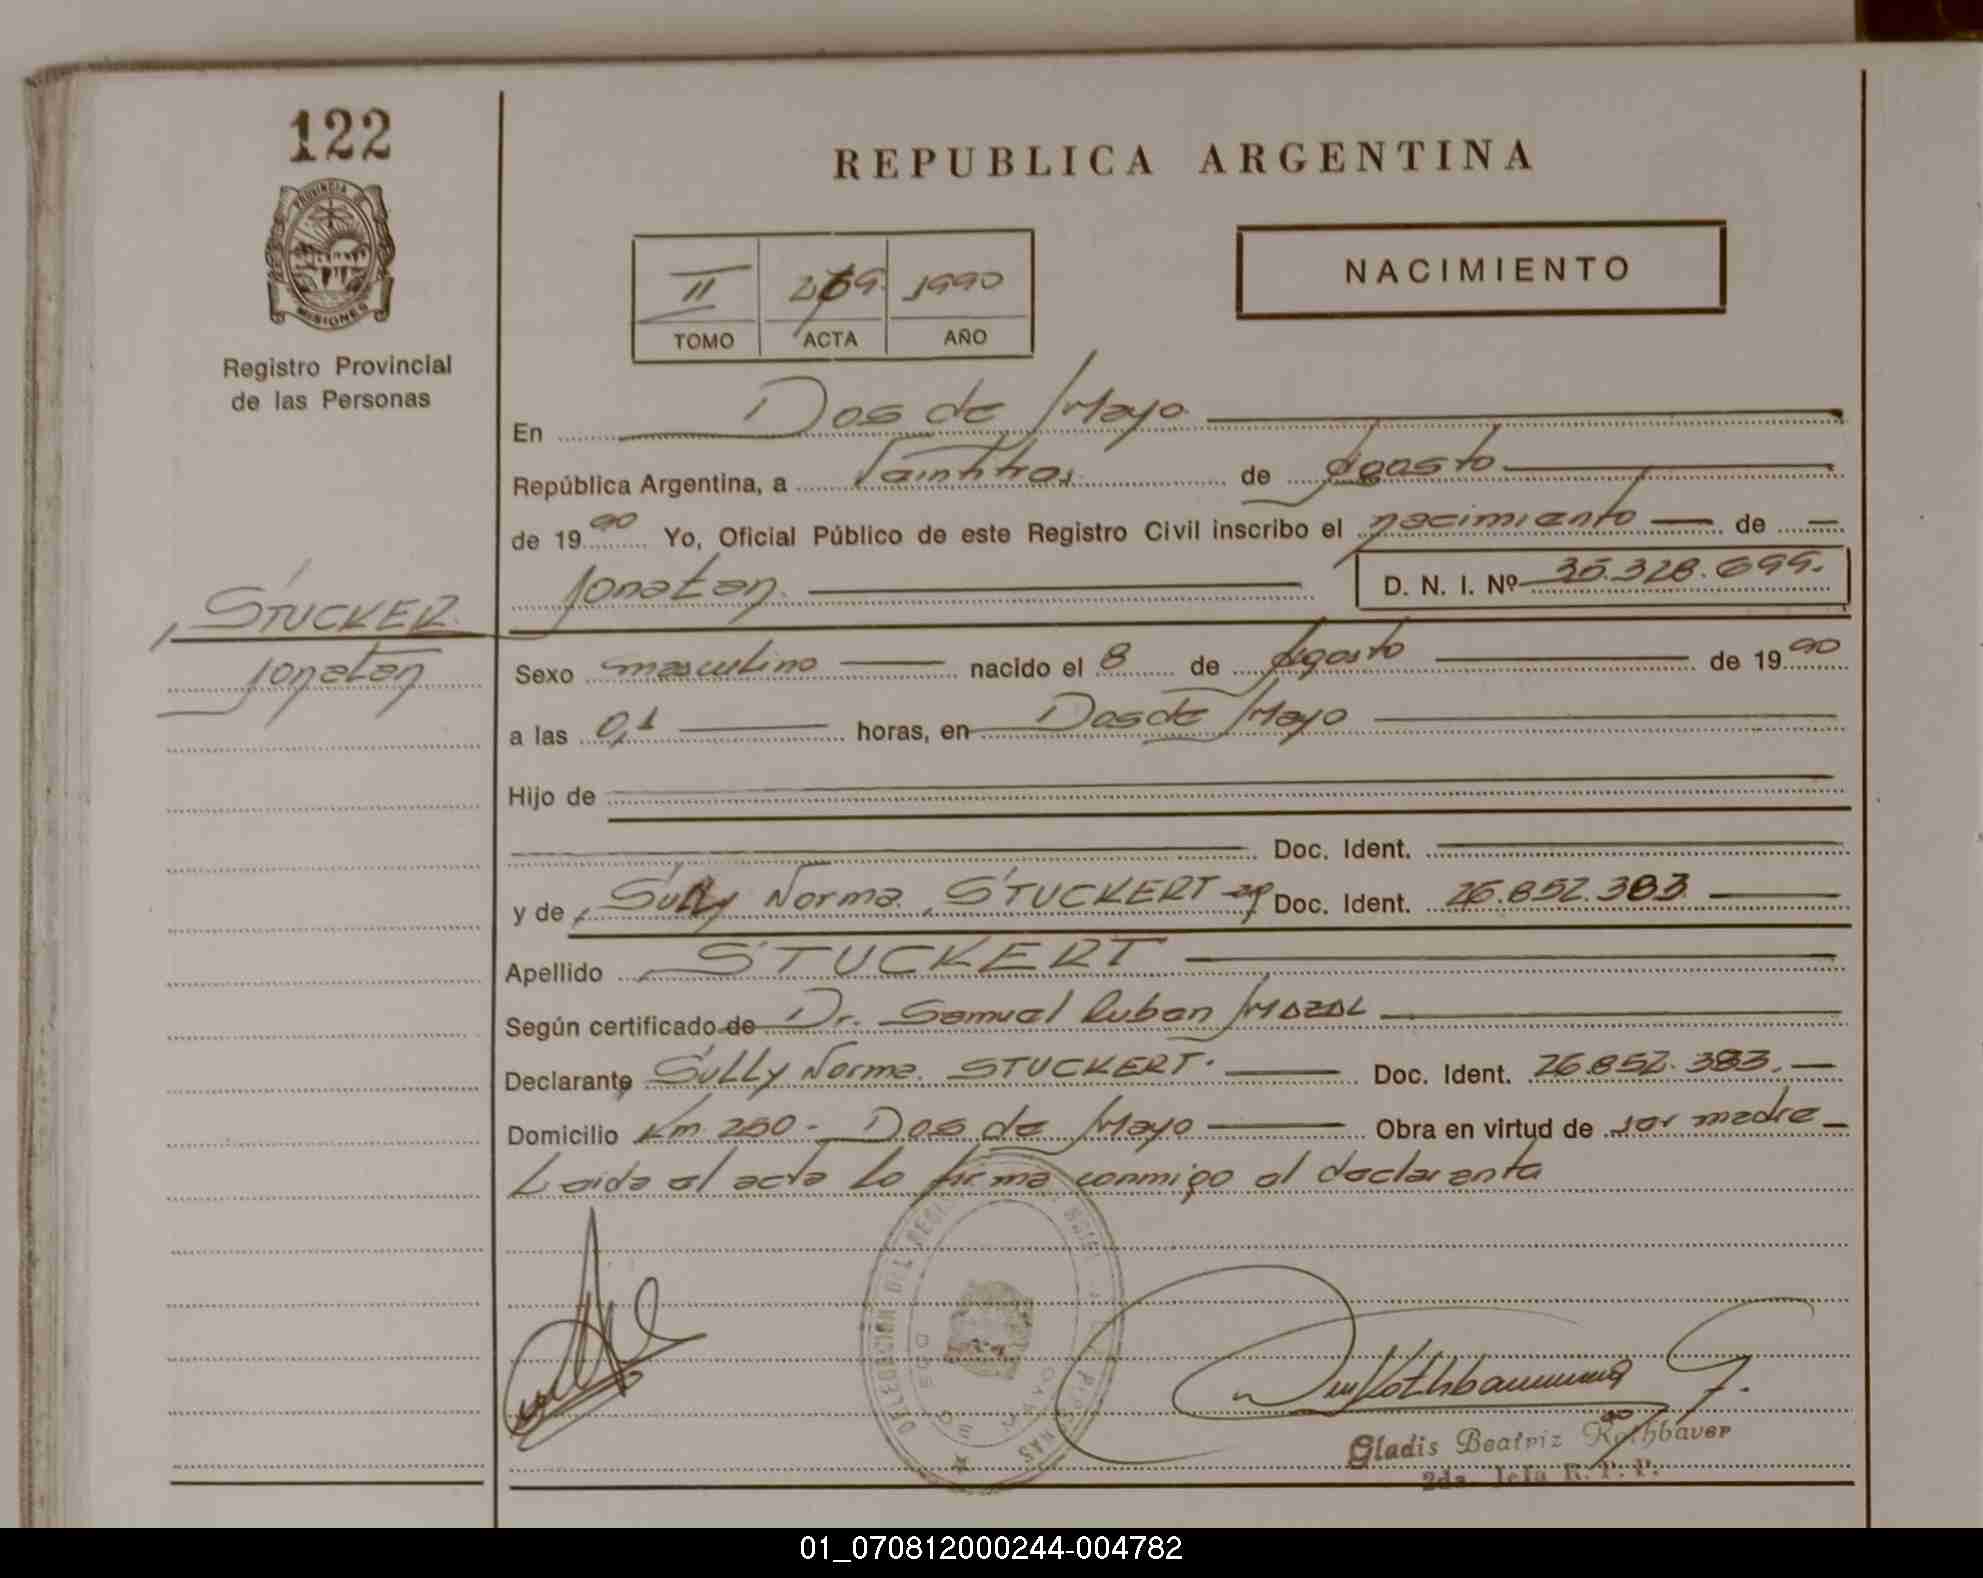 122
REPUBLICA ARGENTINA
PROVINCIA DE
MISIONES
Registro Provincial
de las Personas
NACIMIENTO
II 1990
TOMO ACTA AÑO
En Dos de Mayo
República Argentina, a Veintitres de Agosto
de 1990 Yo, Oficial Público de este Registro Civil inscribo el nacimiento de
Jonatan D. N. I. Nº 35.328.699.
STUCKER
Jonatan
Sexo masculino nacido el 8 de Agosto de 1990
a las 0,1 horas, en Dos de Mayo
Hijo de
Doc. Ident.
y de Sully Norma STUCKERT Doc. Ident. 26.852.383
Apellido STUCKERT
Según certificado de Dr. Samuel Ruben MAZAL
Declarante SULLy Norma STUCKERT. Doc. Ident. 26.852.383.
Domicilio Km. 250 - Dos de Mayo Obra en virtud de ser madre
Leida el acta lo firma conmigo el declarante
DELEGACION DEL
DOS DE MAYO
Gladis Beatriz Rothbauer
2da. Jefa R. P. P.
01_070812000244-004782